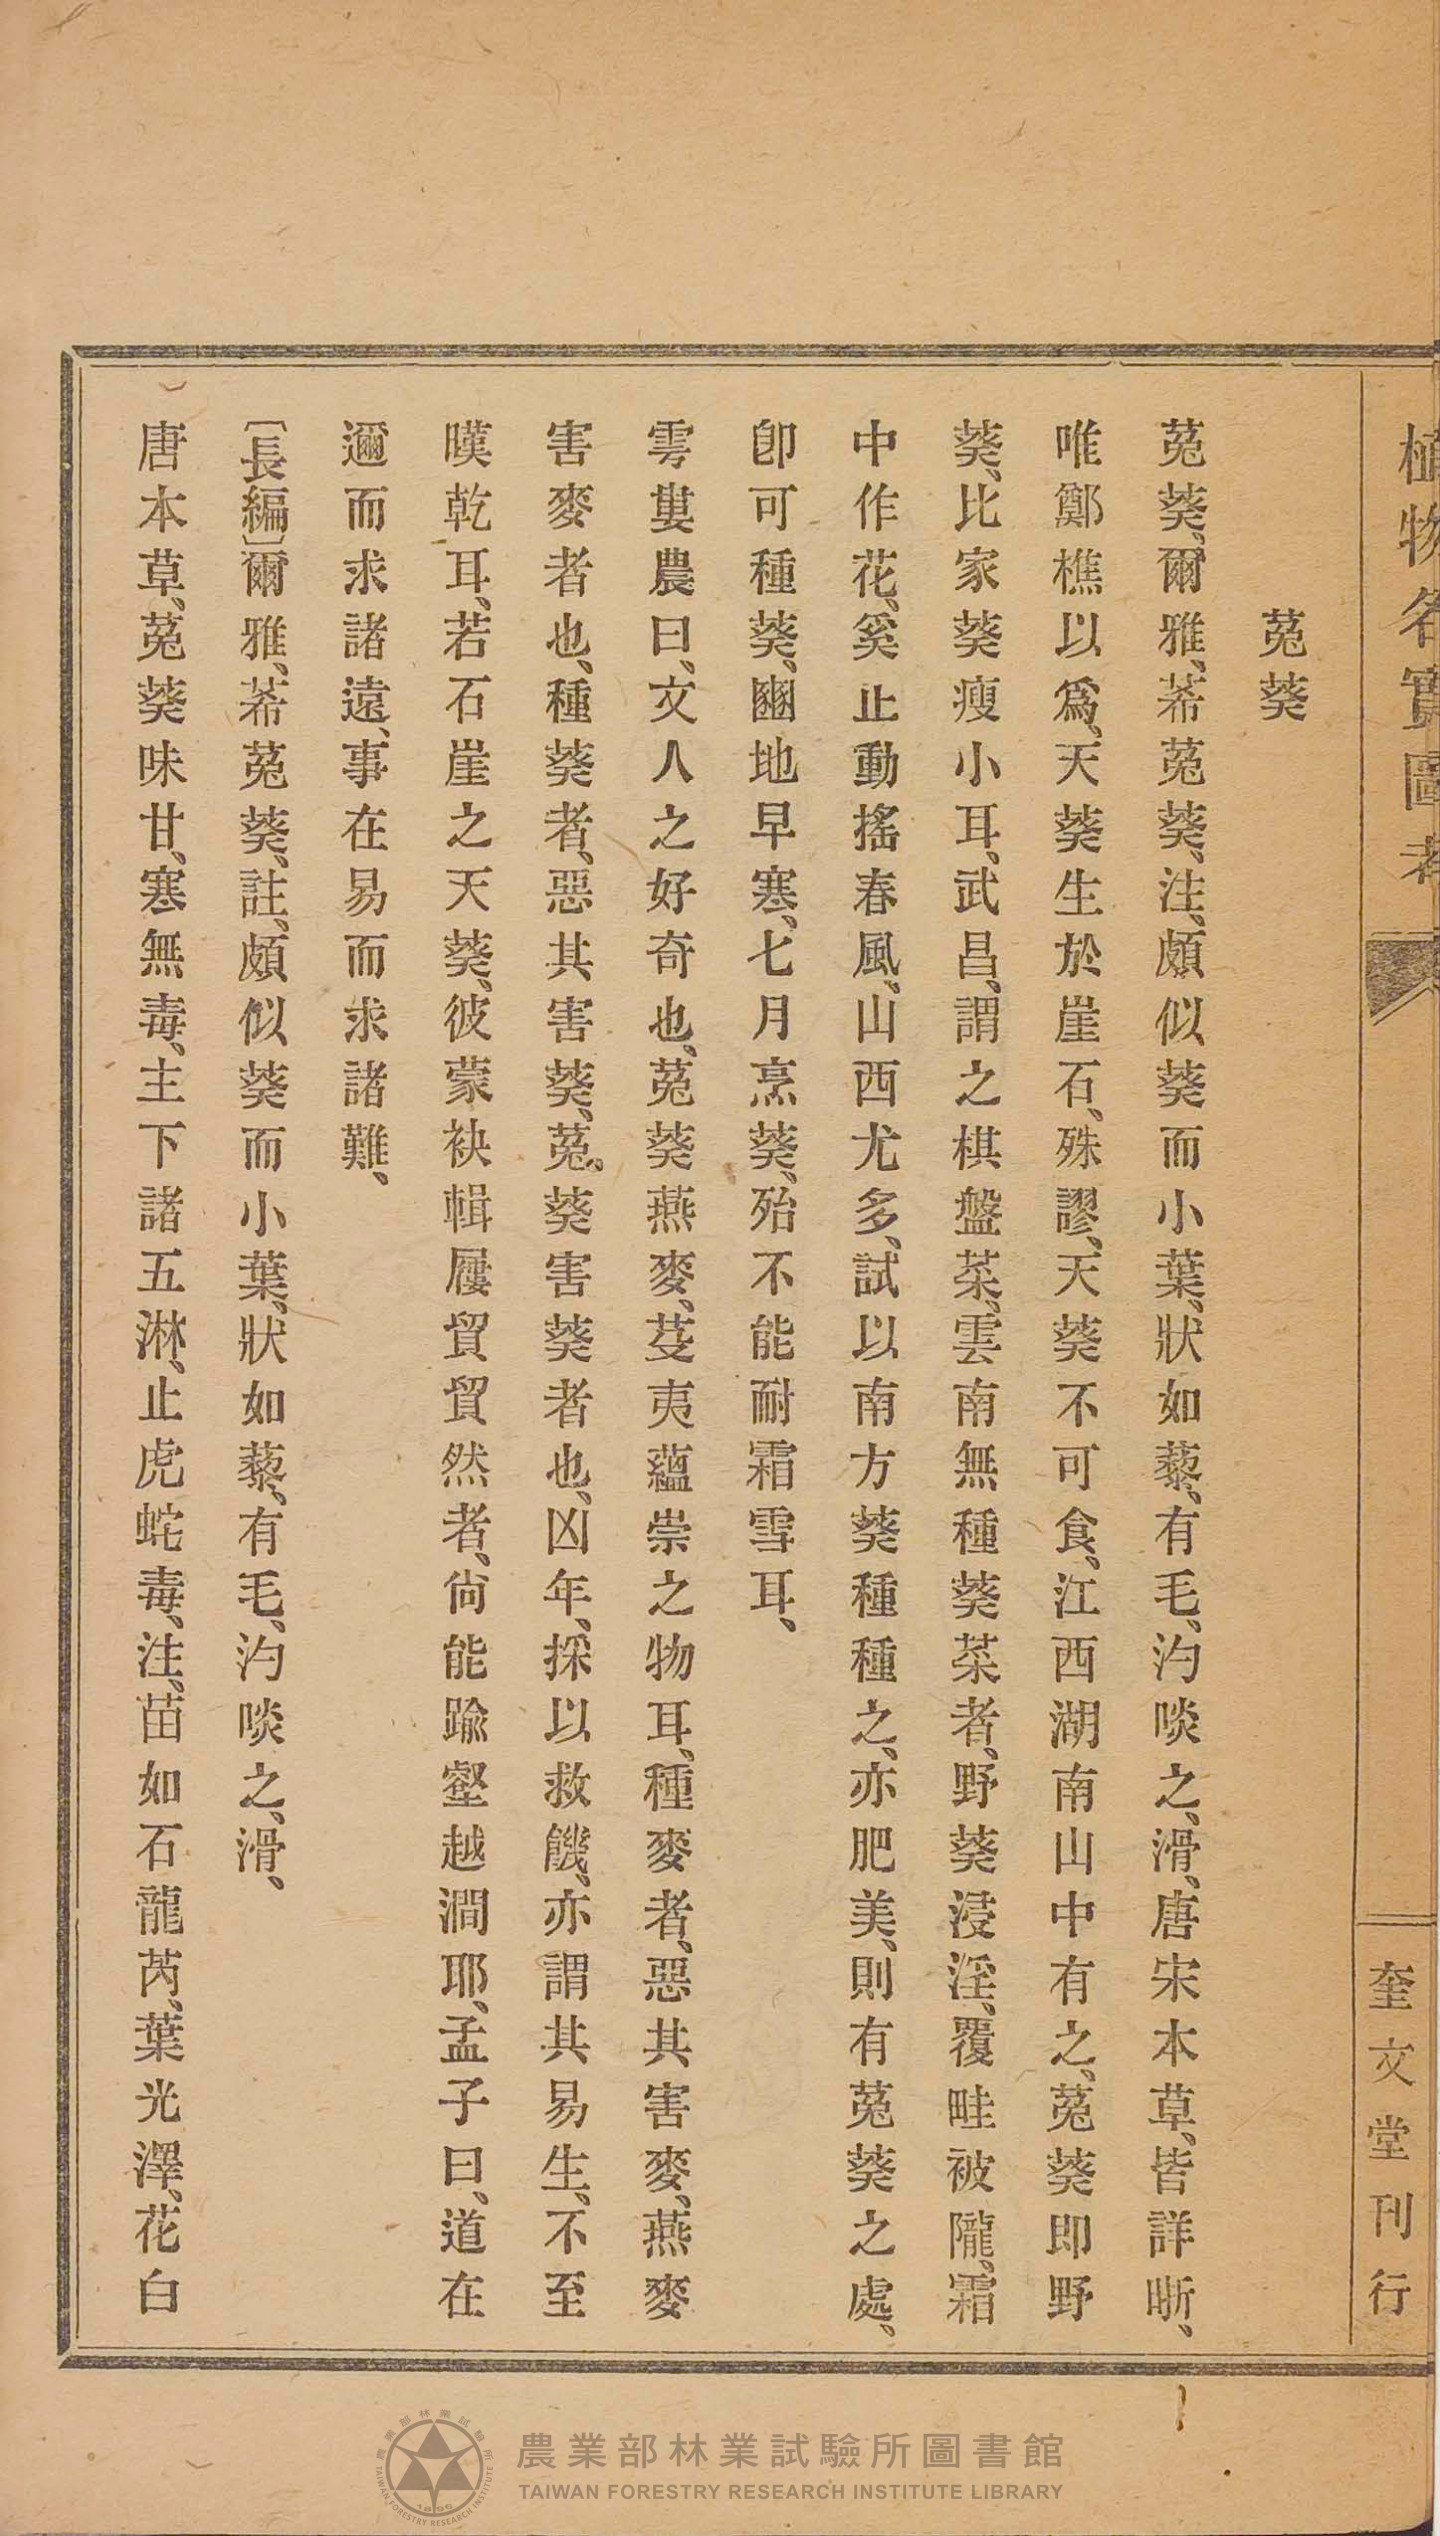 植物名實圖考
奎文堂刊行
菟葵
菟葵、爾雅、莃菟葵、注、頗似葵而小葉、狀如藜、有毛、汋啖之、滑、唐宋本草、皆詳晰、
唯鄭樵以爲、天葵生於崖石、殊謬、天葵不可食、江西湖南山中有之、菟葵即野
葵、比家葵瘦小耳、武昌、謂之棋盤菜、雲南無種葵菜者、野葵浸淫、覆畦被隴、霜
中作花、奚止動搖春風、山西尤多、試以南方葵種種之、亦肥美、則有菟葵之處、
卽可種葵、豳地早寒、七月烹葵、殆不能耐霜雪耳、
雩婁農曰、文人之好奇也、菟葵燕麥、芟夷蘊崇之物耳、種麥者、惡其害麥、燕麥
害麥者也、種葵者、惡其害葵、菟葵害葵者也、凶年、採以救饑、亦謂其易生、不至
暵乾耳、若石崖之天葵、彼蒙袂輯屨貿貿然者、尙能踰壑越澗耶、孟子曰、道在
邇而求諸遠、事在易而求諸難、
〔長編〕爾雅、莃菟葵、註、頗似葵而小葉、狀如藜、有毛、汋啖之、滑、
唐本草、菟葵味甘、寒無毒、主下諸五淋、止虎蛇毒、注、苗如石龍芮、葉光澤、花白
農業部林業試驗所圖書館
TAIWAN FORESTRY RESEARCH INSTITUTE LIBRARY
農業部林業試驗所
TAIWAN FORESTRY RESEARCH INSTITUTE
1896